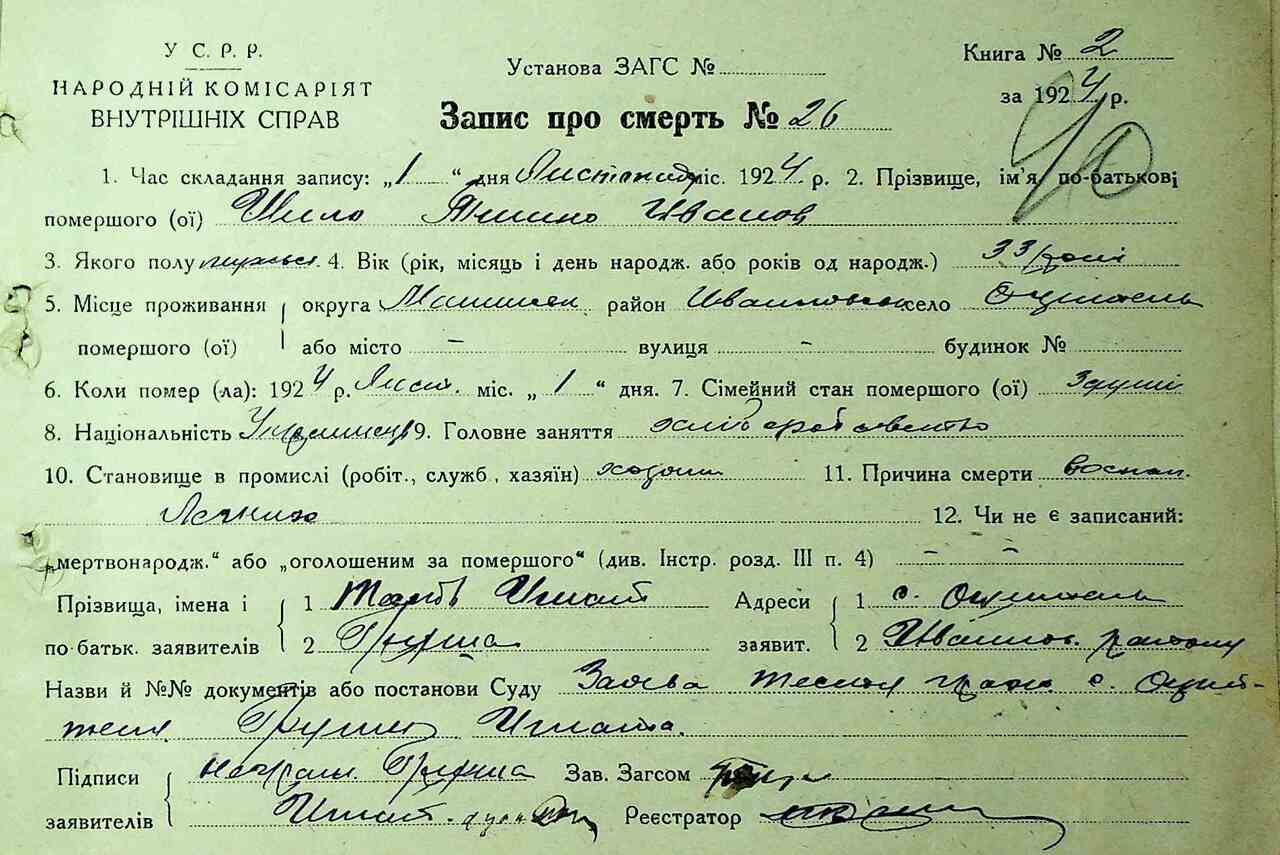 У С. Р. Р.
НАРОДНІЙ КОМІСАРІЯТ
ВНУТРІШНІХ СПРАВ
Установа ЗАГС №
Запис про смерть № 26
Книга № 2
за 1924 р.
40
1. Час складання запису: „1“ дня Листопад міс. 1924 р. 2. Прізвище, ім'я по-батькові
помершого (ої) Шило Иванов
3. Якого полу 4. Вік (рік, місяць і день народж. або років од народж.) 33 роки
5. Місце проживання округа район Иванков село Оцитель
помершого (ої) або місто - вулиця - будинок №
6. Коли помер (-ла): 1924 р. Лист. міс. „1“ дня. 7. Сімейний стан помершого (ої)
8. Національність Украинец 9. Головне заняття хліборобство
10. Становище в промислі (робіт., служб, хазяїн) хозяин 11. Причина смерти воспал.
Легких 12. Чи не є записаний:
„мертвонародж.“ або „оголошеним за помершого“ (див. Інстр. розд. III п. 4) - -
Прізвища, імена і 1 Игнат Адреси 1 с. Оцитель
по-батьк. заявителів 2 Груша заявит. 2 Иванков. району
Назви й №№ документів або постанови Суду Заява гражд. с. Оцит-
теля Груши Игната.
Підписи неграм. Груша Зав. Загсом
заявителів Игнат Реєстратор